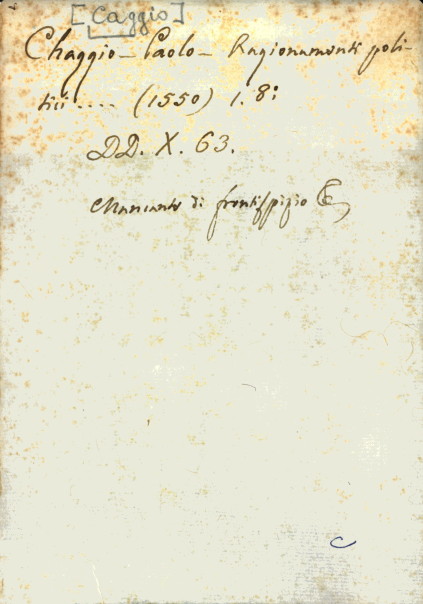 [Caggio]
Chaggio - Paolo - Ragionamenti poli-
tici .... (1550) 1. 8:
DD. X. 63.
Mancante di frontispizio
C